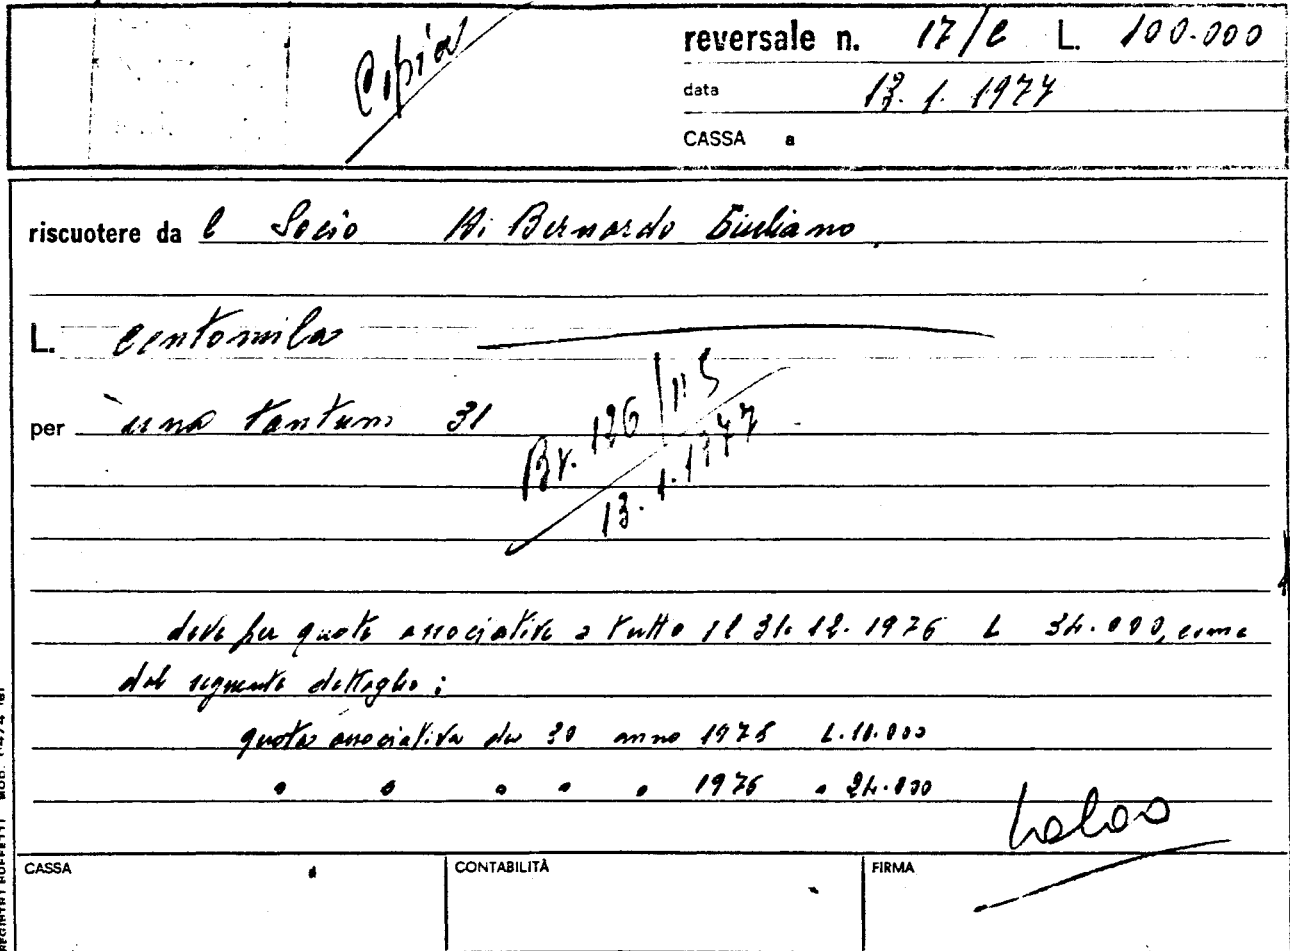 Copia
reversale n. 17/C L. 100.000
data 13. 1. 1977
CASSA a
riscuotere da l Socio Di Bernardo Giuliano
L. centomila
per una tantum 31
Br. 126/
13. 1. 1977
deve per quote associative a tutto il 31. 12. 1976 L 34.000, come
dal seguente dettaglio:
quota associativa da 30 anno 1975 L. 10.000
" " " " " 1976 " 24.000
CASSA CONTABILITÀ FIRMA
REGISTRI BUFFETTI MOD.